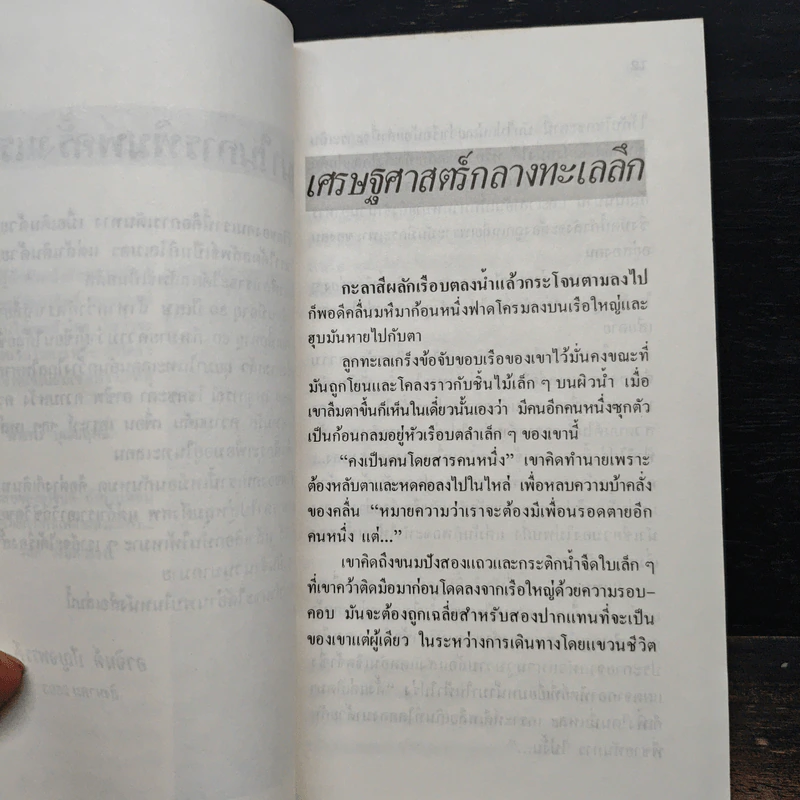 เศรษฐศาสตร์กลางทะเลลึก
กะลาสีผลักเรือบตลงน้ำแล้วกระโจนตามลงไป
ก็พอดีคลื่นมหึมาก้อนหนึ่งฟาดโครมลงบนเรือใหญ่และ
ฮุบมันหายไปกับตา
ลูกทะเลเกร็งข้อจับขอบเรือของเขาไว้มั่นคงขณะที่
มันถูกโยนและโคลงราวกับชิ้นไม้เล็ก ๆ บนผิวน้ำ เมื่อ
เขาลืมตาขึ้นก็เห็นในเดี๋ยวนั้นเองว่า มีคนอีกคนหนึ่งซุกตัว
เป็นก้อนกลมอยู่หัวเรือบตลำเล็ก ๆ ของเขานี้
“คงเป็นคนโดยสารคนหนึ่ง” เขาคิดทำนายเพราะ
ต้องหลับตาและหดคอลงไปในไหล่ เพื่อหลบความบ้าคลั่ง
ของคลื่น “หมายความว่าเราจะต้องมีเพื่อนรอดตายอีก
คนหนึ่ง แต่...”
เขาคิดถึงขนมปังสองแถวและกระติกน้ำจืดใบเล็ก ๆ
ที่เขาคว้าติดมือมาก่อนโดดลงจากเรือใหญ่ด้วยความรอบ-
คอบ มันจะต้องถูกเฉลี่ยสำหรับสองปากแทนที่จะเป็น
ของเขาแต่ผู้เดียว ในระหว่างการเดินทางโดยแขวนชีวิต